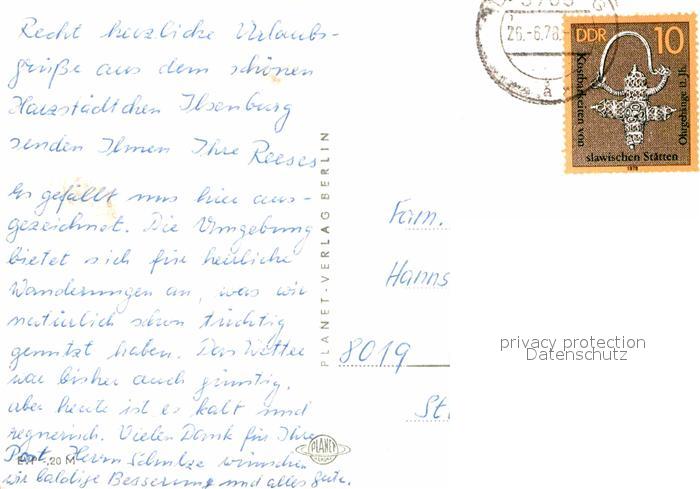 Recht herzliche Urlaubs-
grüße aus dem schönen
Harzstädtchen Ilsenburg
senden Ihnen Ihre Reeses
Es gefällt uns hier aus-
gezeichnet. Die Umgebung
bietet sich für herrliche
Wanderungen an, was wir
natürlich schon tüchtig
genutzt haben. Das Wetter
war bisher auch günstig,
aber heute ist es kalt und
regnerisch. Vielen Dank für Ihre
Post, Herrn Schulze wünschen
wir baldige Besserung und alles Gute.
-,20 M
PLANET
PLANET-VERLAG BERLIN
26.-6.78.
a
DDR 10
Kostbarkeiten von
slawischen Stätten
Ohrgehänge 11. Jh.
1978
Fam.
Hanns
8019
St
privacy protection
Datenschutz